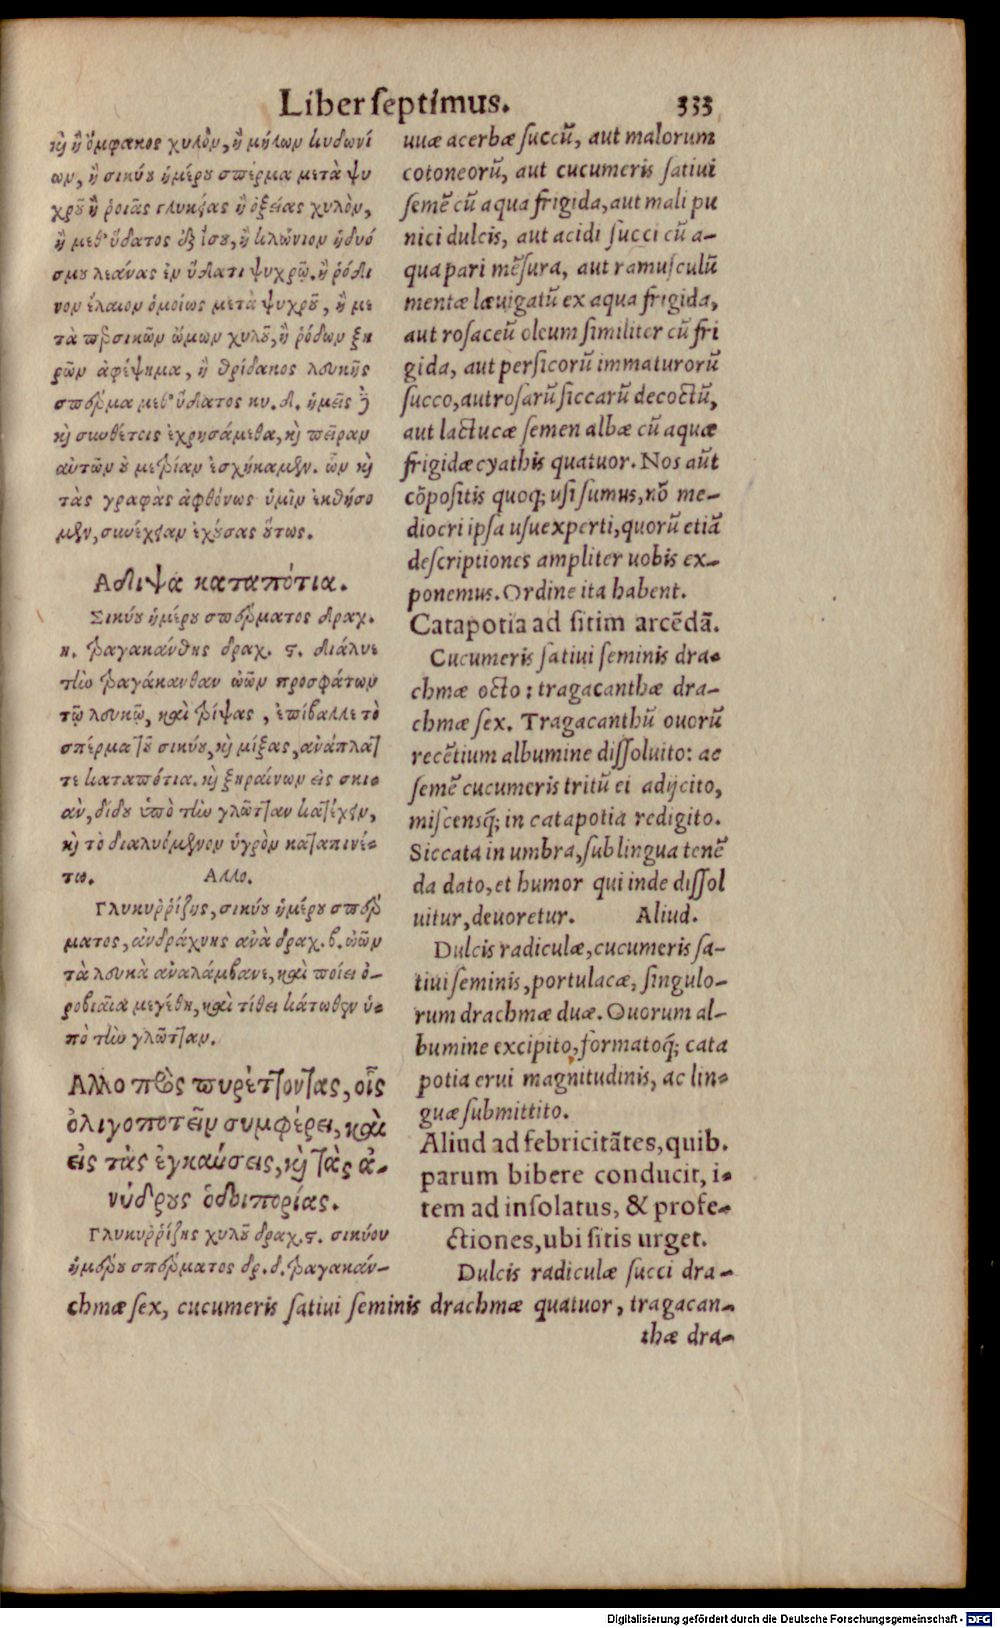 Liber septimus. 333
κỳ ἢ ὄμφακος χυλὸν, ἢ μήλων κυδωνί
ων, ἢ σικύου ἡμέρου σπέρμα μετὰ ψυ
χροῦ ἢ ῥοιᾶς γλυκείας ἢ ὀξείας χυλὸν,
ἢ μεθ' ὕδατος ἐξ ἴσου, ἢ κλώνιον ἡδυό
σμου λεάνας ἐν ὕδατι ψυχρῷ. ἢ ῥόδι
νον ἔλαιον ὁμοίως μετὰ ψυχροῦ, ἢ με
τὰ περσικῶν ὤμων χυλοῦ, ἢ ῥόδων ξη
ρῶν ἀφέψημα, ἢ θρίδακος λευκῆς
σπέρμα μεθ' ὕδατος κυ. δ. ἡμεῖς δὲ
καὶ συνθέτοις ἐχρησάμεθα, καὶ πεῖραν
αὐτῶν οὐ μετρίαν ἐσχήκαμεν. ὧν καὶ
τὰς γραφὰς ἀφθόνως ὑμῖν ἐκθήσο
μεν, συνέχειαν ἐχούσας οὕτως.
Αδιψα καταπότια.
Σικύου ἡμέρου σπέρματος δραχ.
η. τραγακάνθης δραχ. ϛ. διάλυε
τὴν τραγάκανθαν ὠῶν προσφάτων
τῷ λευκῷ, καὶ τρίψας, ἐπίβαλλε τὸ
σπέρμα τοῦ σικύου, καὶ μίξας, ἀνάπλατ
τε καταπότια. καὶ ξηραίνων εἰς σκι-
αν, δίδου ὑπὸ τὴν γλῶτταν κατέχειν,
καὶ τὸ διαλυόμενον ὑγρὸν καταπινέ-
τω. Αλλο.
Γλυκυῤῥίζης, σικύου ἡμέρου σπέρ
ματος, ἀνδράχνης ἀνὰ δραχ. β. ὠῶν
τὰ λευκὰ ἀναλάμβανε, καὶ ποίει ὀ-
ροβιαῖα μεγέθη, καὶ τίθει κάτωθεν ὑ-
πὸ τὴν γλῶτταν.
Αλλο πρὸς πυρέττοντας, οἷς
ὀλιγοποτεῖν συμφέρει, καὶ
εἰς τὰς ἐγκαύσεις, καὶ τὰς ἀ-
νύδρους ὁδοιπορίας.
Γλυκυῤῥίζης χυλοῦ δραχ. ϛ. σικύου
ἡμέρου σπέρματος δρ. δ. τραγακάν-
uuæ acerbæ succũ, aut malorum
cotoneorũ, aut cucumeris satiui
semẽ cũ aqua frigida, aut mali pu
nici dulcis, aut acidi succi cũ a-
qua pari mẽsura, aut ramusculũ
mentæ læuigatũ ex aqua frigida,
aut rosaceũ oleum similiter cũ fri
gida, aut persicorũ immaturorũ
succo, aut rosarũ siccarũ decoctũ,
aut lactucæ semen albæ cũ aquæ
frigidæ cyathis quatuor. Nos aũt
cõpositis quoq; usi sumus, nõ me-
diocri ipsa usu experti, quorũ etiã
descriptiones ampliter uobis ex-
ponemus. Ordine ita habent.
Catapotia ad sitim arcẽdã.
Cucumeris satiui seminis dra-
chmæ octo: tragacanthæ dra-
chmæ sex. Tragacanthũ ouorũ
recẽtium albumine dissoluito: ac
semẽ cucumeris tritũ ei adijcito,
miscensq́; in catapotia redigito.
Siccata in umbra, sub lingua tenẽ
da dato, et humor qui inde dissol
uitur, deuoretur. Aliud.
Dulcis radiculæ, cucumeris sa-
tiui seminis, portulacæ, singulo-
rum drachmæ duæ. Ouorum al-
bumine excipito, formatoq́; cata
potia erui magnitudinis, ac lin-
guæ submittito.
Aliud ad febricitãtes, quib.
parum bibere conducit, i-
tem ad insolatus, & profe-
ctiones, ubi sitis urget.
Dulcis radiculæ succi dra-
chmæ sex, cucumeris satiui seminis drachmæ quatuor, tragacan-
thæ dra-
Digitalisierung gefördert durch die Deutsche Forschungsgemeinschaft - DFG